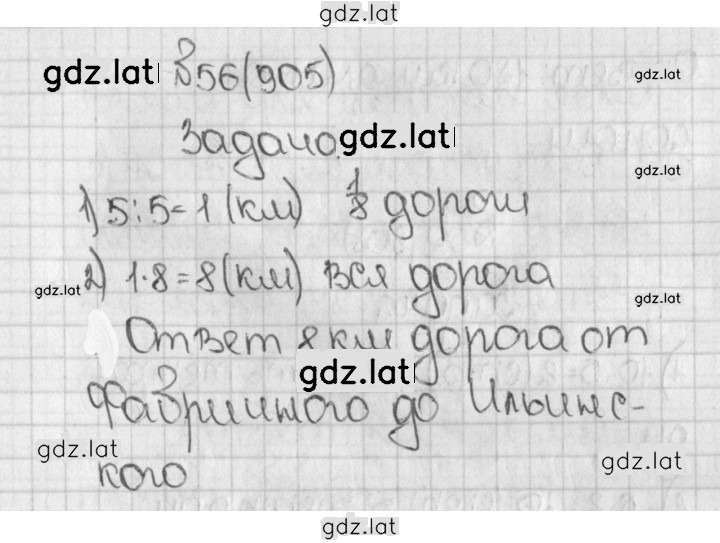 gdz.lat
gdz.lat №56(905) gdz.lat
Задача. gdz.lat
gdz.lat
1) 5:5=1 (км) 1/8 дороги
gdz.lat 2) 1·8=8(км) вся дорога gdz.lat
Ответ 8 км дорога от
gdz.lat
Фабричного до Ильинс-
gdz.lat
кого gdz.lat
gdz.lat